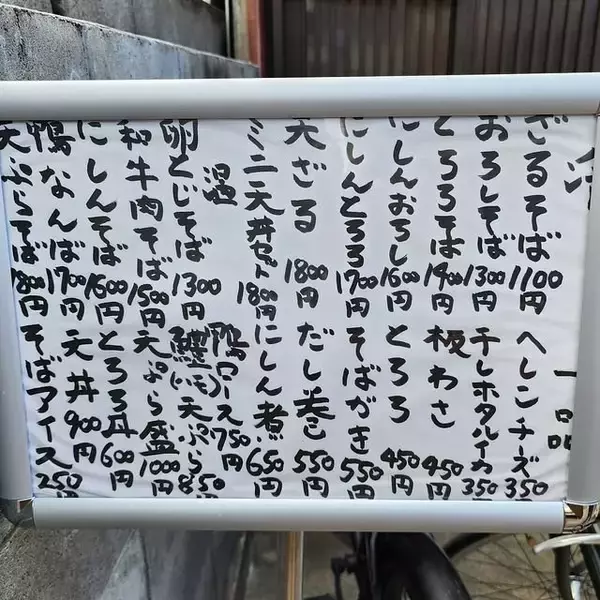 冷
ざるそば 1100円
おろしそば 1300円
とろろそば 1400円
にしんおろし 1600円
にしんとろろ 1700円
天ざる 1800円
ミニ天丼セット 1800円
温
卵とじそば 1300円
和牛肉そば 1500円
にしんそば 1600円
鴨なんば 1700円
天ぷらそば 1800円
一品
ヘレンチーズ 350
干しホタルイカ 350
板わさ 450円
とろろ 450円
そばがき 550円
だし巻き 550円
にしん煮 650円
鴨ロース 750円
鱧(ハモ)天ぷら 850
天ぷら盛 1000円
とろろ丼 600円
天丼 900円
そばアイス 250円